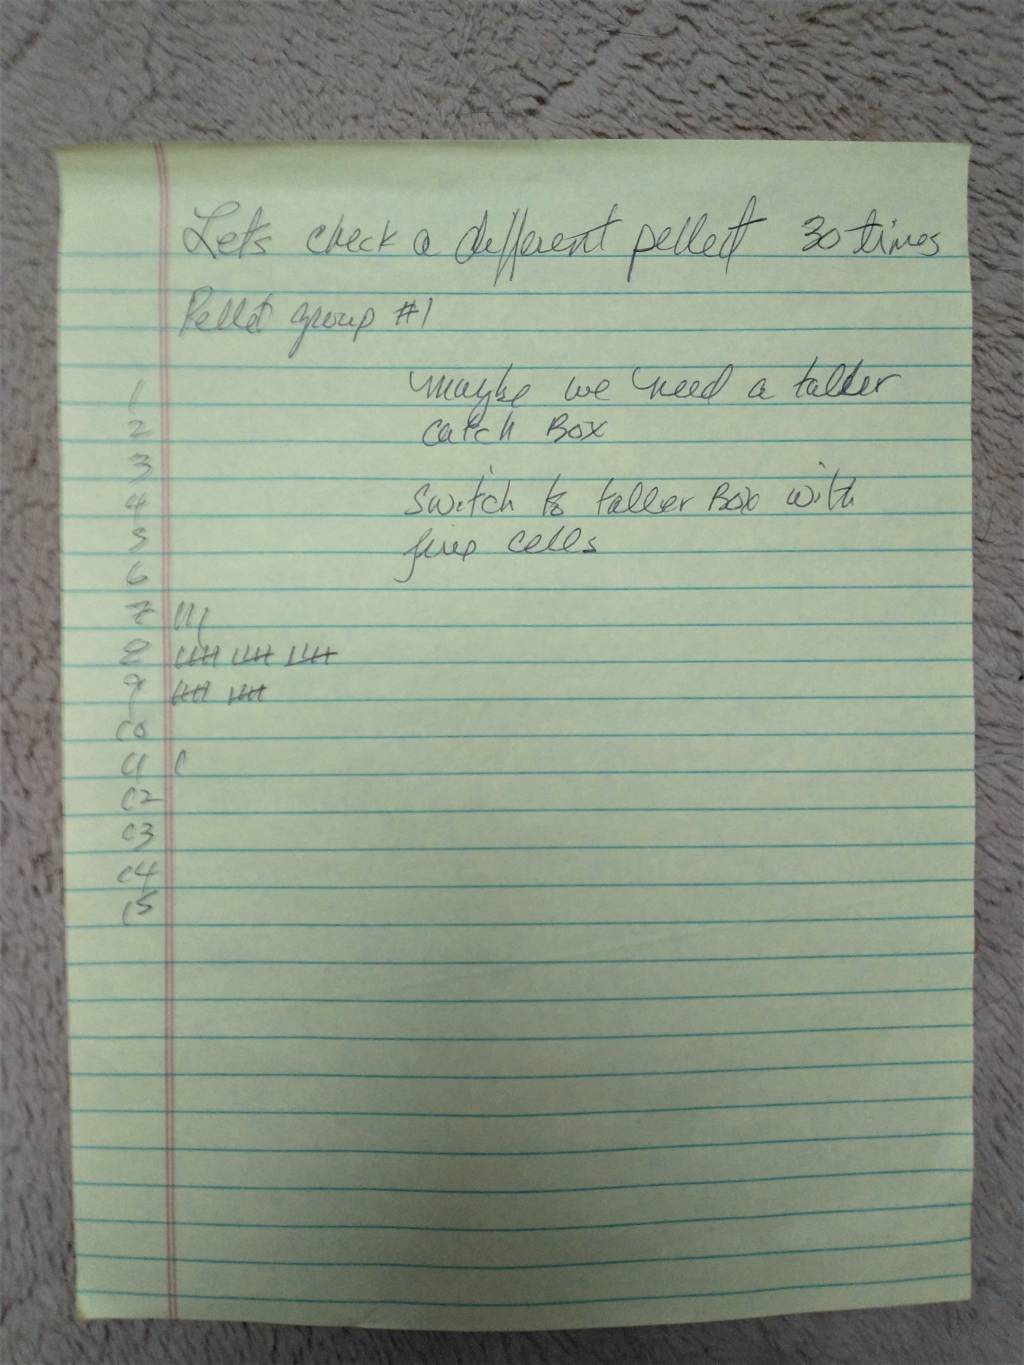 Lets check a different pellet 30 times
Pellet group #1
1 maybe we need a taller
2 catch Box
3
4 Switch to taller Box with
5 cells
6
7 |||
8 |||| |||| ||||
9 |||| ||||
10
11 |
12
13
14
15